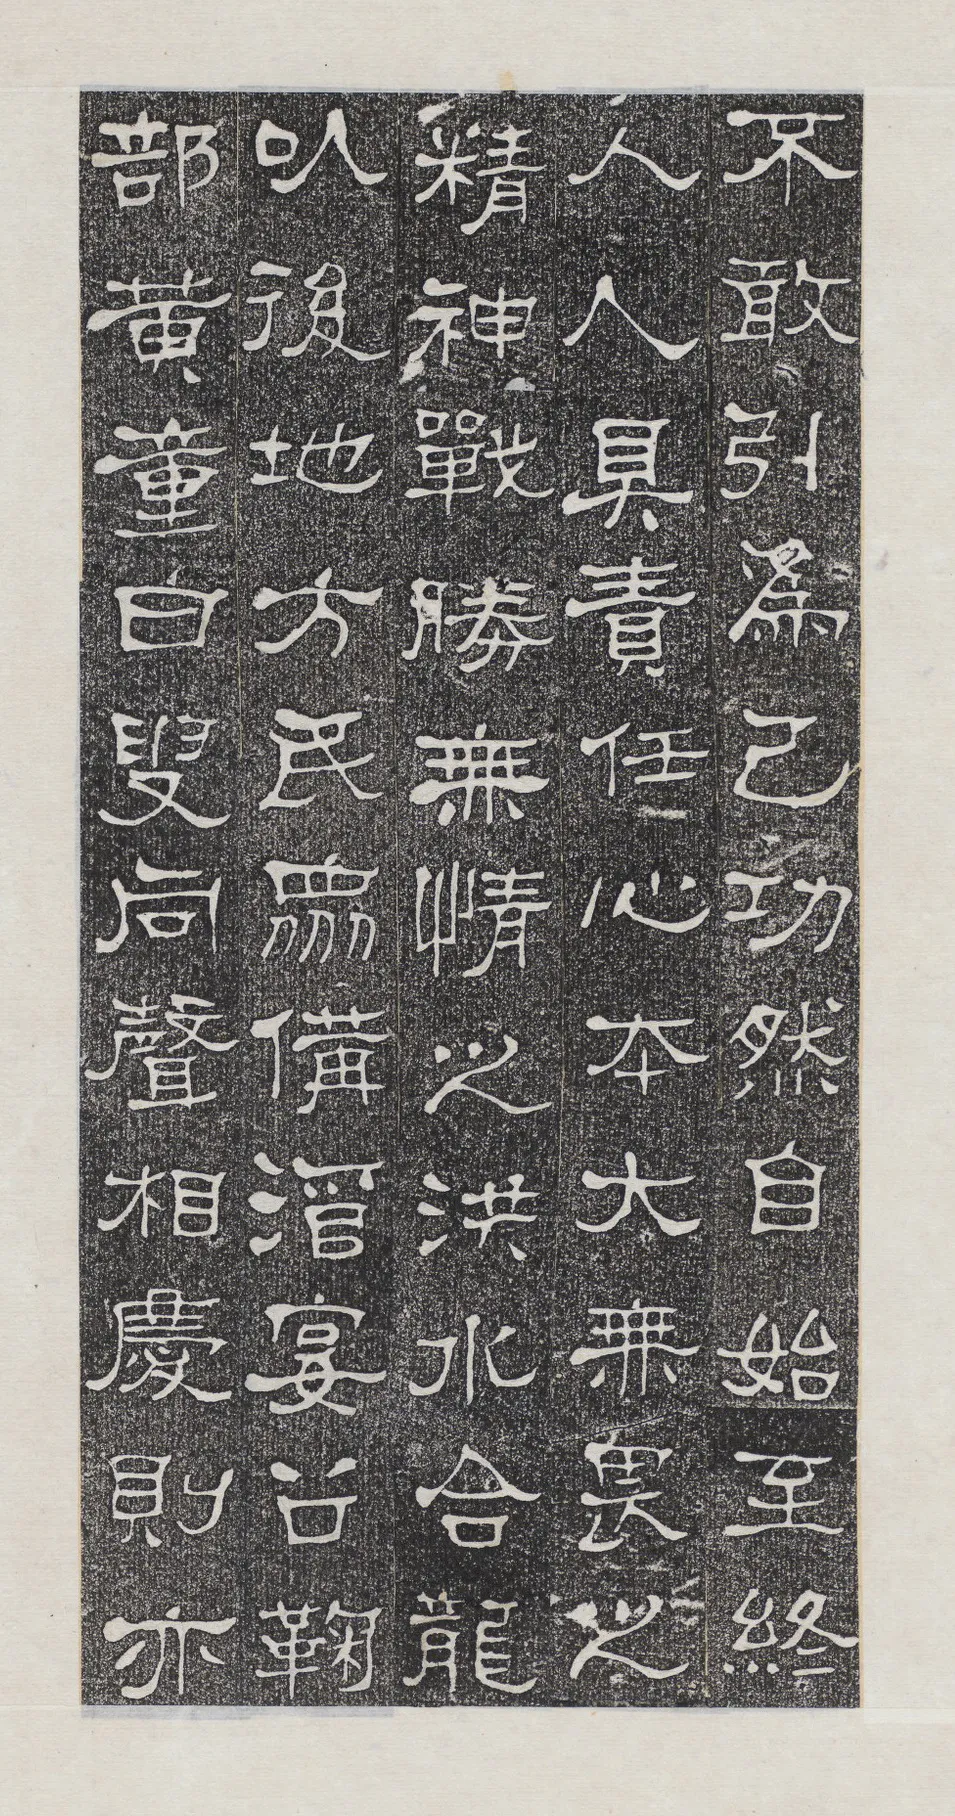 不敢引為己功然自始至終
人人具責任心本大無畏之
精神戰勝無情之洪水合龍
以後地方民眾備酒宴召鞠
部黃童白叟同聲相慶則亦